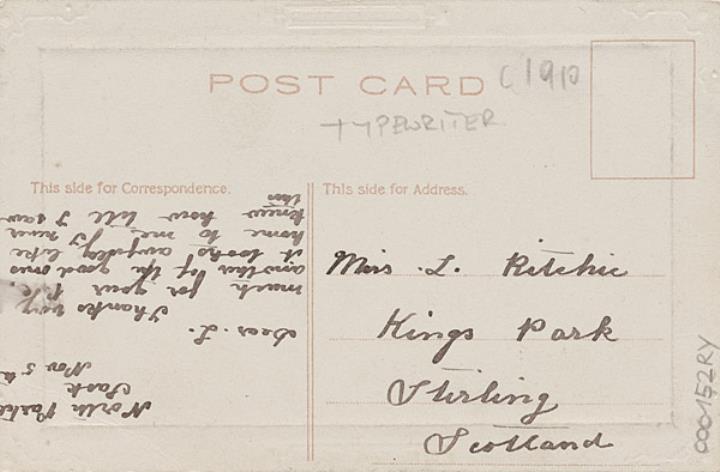 POST CARD
C1910
TYPEWRITER
This side for Correspondence.
This side for Address.
North Portal
Sask
Nov 5th
Dear. L.
Thanks very
much for your P.C.
another of the good ones
it looks awfully like
home to me, I never
knew how till I saw
this
Miss. L. Ritchie
Kings Park
Stirling
Scotland
000152RY